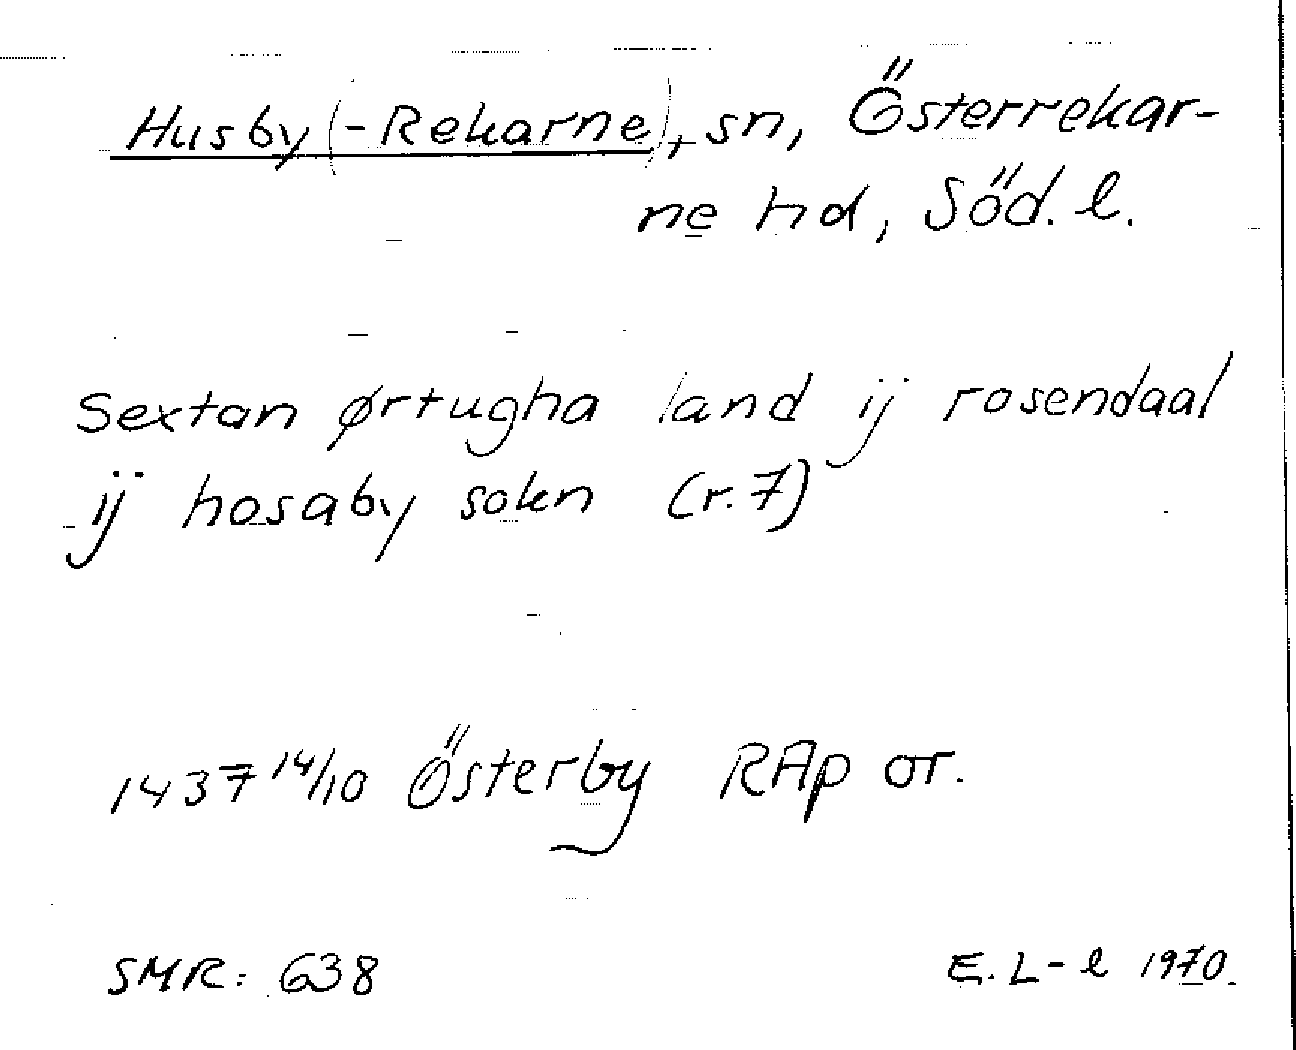 Husby (-Rekarne), sn, Österrekar-
ne hd, Söd. l.
Sextan ørtugha land ij rosendaal
ij hosaby sokn (r. 7)
1437 14/10 Österby RAp or.
SMR: 638 E. L-l 1970.